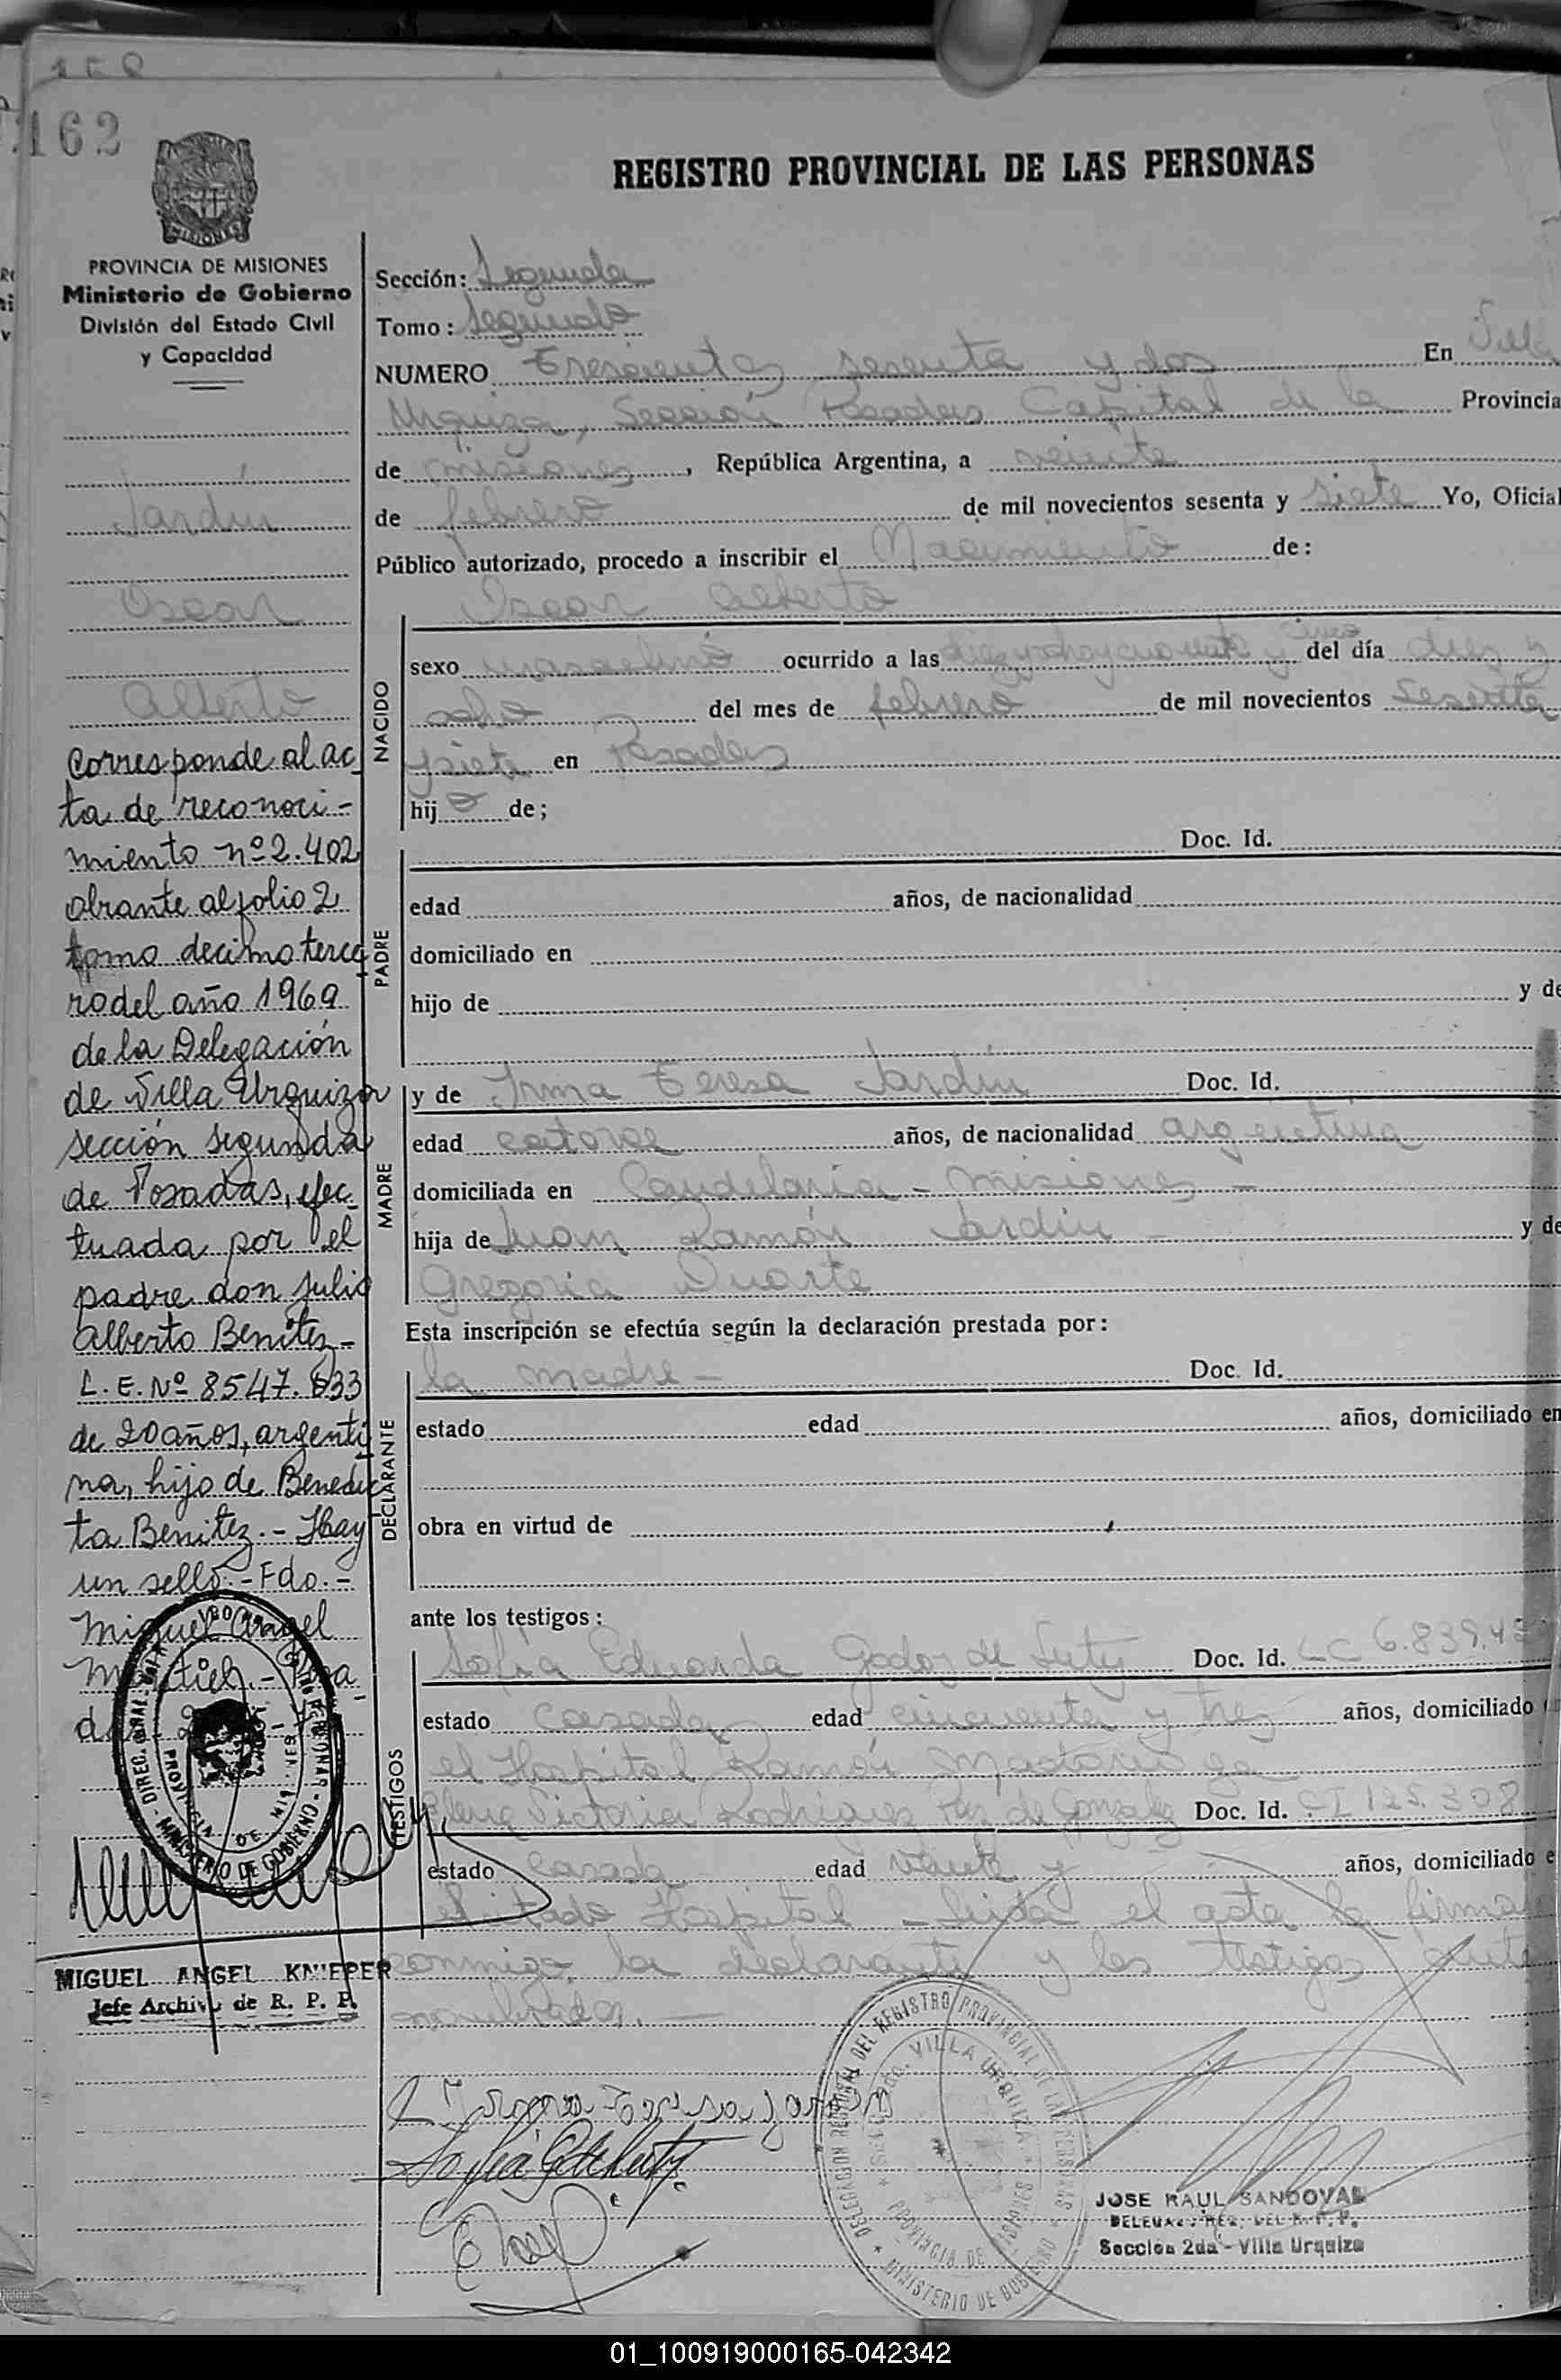 162
REGISTRO PROVINCIAL DE LAS PERSONAS
MISIONES
PROVINCIA DE MISIONES
Ministerio de Gobierno
División del Estado Civil
y Capacidad
Jardín
Oscar
Alberto
Corresponde al ac
ta de reconoci-
miento nº 2.402
obrante al folio 2
tomo decimo terce
ro del año 1969
de la Delegación
de Villa Urquiza
sección segunda
de Posadas, efec
tuada por el
padre don Julio
Alberto Benitez-
L.E. Nº 8547.
de 20 años, argenti
na, hijo de Benedic
ta Benitez.- Hay
un sello.- Fdo.-
Miguel Angel
MIGUEL ANGEL KNIEPER
Jefe Archivo de R. P. P.
Sección: Segunda
Tomo: Segundo
NUMERO Trescientos sesenta y dos En Villa
Urquiza, Sección Posadas Capital de la Provincia
de Misiones, República Argentina, a veinte
de febrero de mil novecientos sesenta y siete Yo, Oficial
Público autorizado, procedo a inscribir el Nacimiento de:
Oscar Alberto
NACIDO
sexo masculino ocurrido a las del día diez y
ocho del mes de febrero de mil novecientos sesenta
y siete en Posadas
hijo de;
PADRE
Doc. Id.
edad años, de nacionalidad
domiciliado en
hijo de y de
MADRE
y de Irma Teresa Jardín Doc. Id.
edad catorce años, de nacionalidad argentina
domiciliada en Candelaria - Misiones -
hija de Juan Ramón Jardín - y de
Gregoria Duarte
Esta inscripción se efectúa según la declaración prestada por:
DECLARANTE
la madre - Doc. Id.
estado edad años, domiciliado en
obra en virtud de
ante los testigos:
TESTIGOS
Sofía Eduarda Godoy de Doc. Id. LC 6.839.
estado casada edad cincuenta y tres años, domiciliado
el Hospital Ramón Madariaga
Elena Victoria Rodríguez de González Doc. Id. CI 125.308
estado casada edad y años, domiciliado e
Hospital - Leída el acta la firman
conmigo la declarante y los testigos ante
nombrados. -
Irma Teresa Jardin
DELEGACION REGIONAL DEL REGISTRO PROVINCIAL DE LAS PERSONAS
VILLA URQUIZA
PROVINCIA DE MISIONES
MINISTERIO DE GOBIERNO
JOSE RAUL SANDOVAL
Sección 2da - Villa Urquiza
01_100919000165-042342